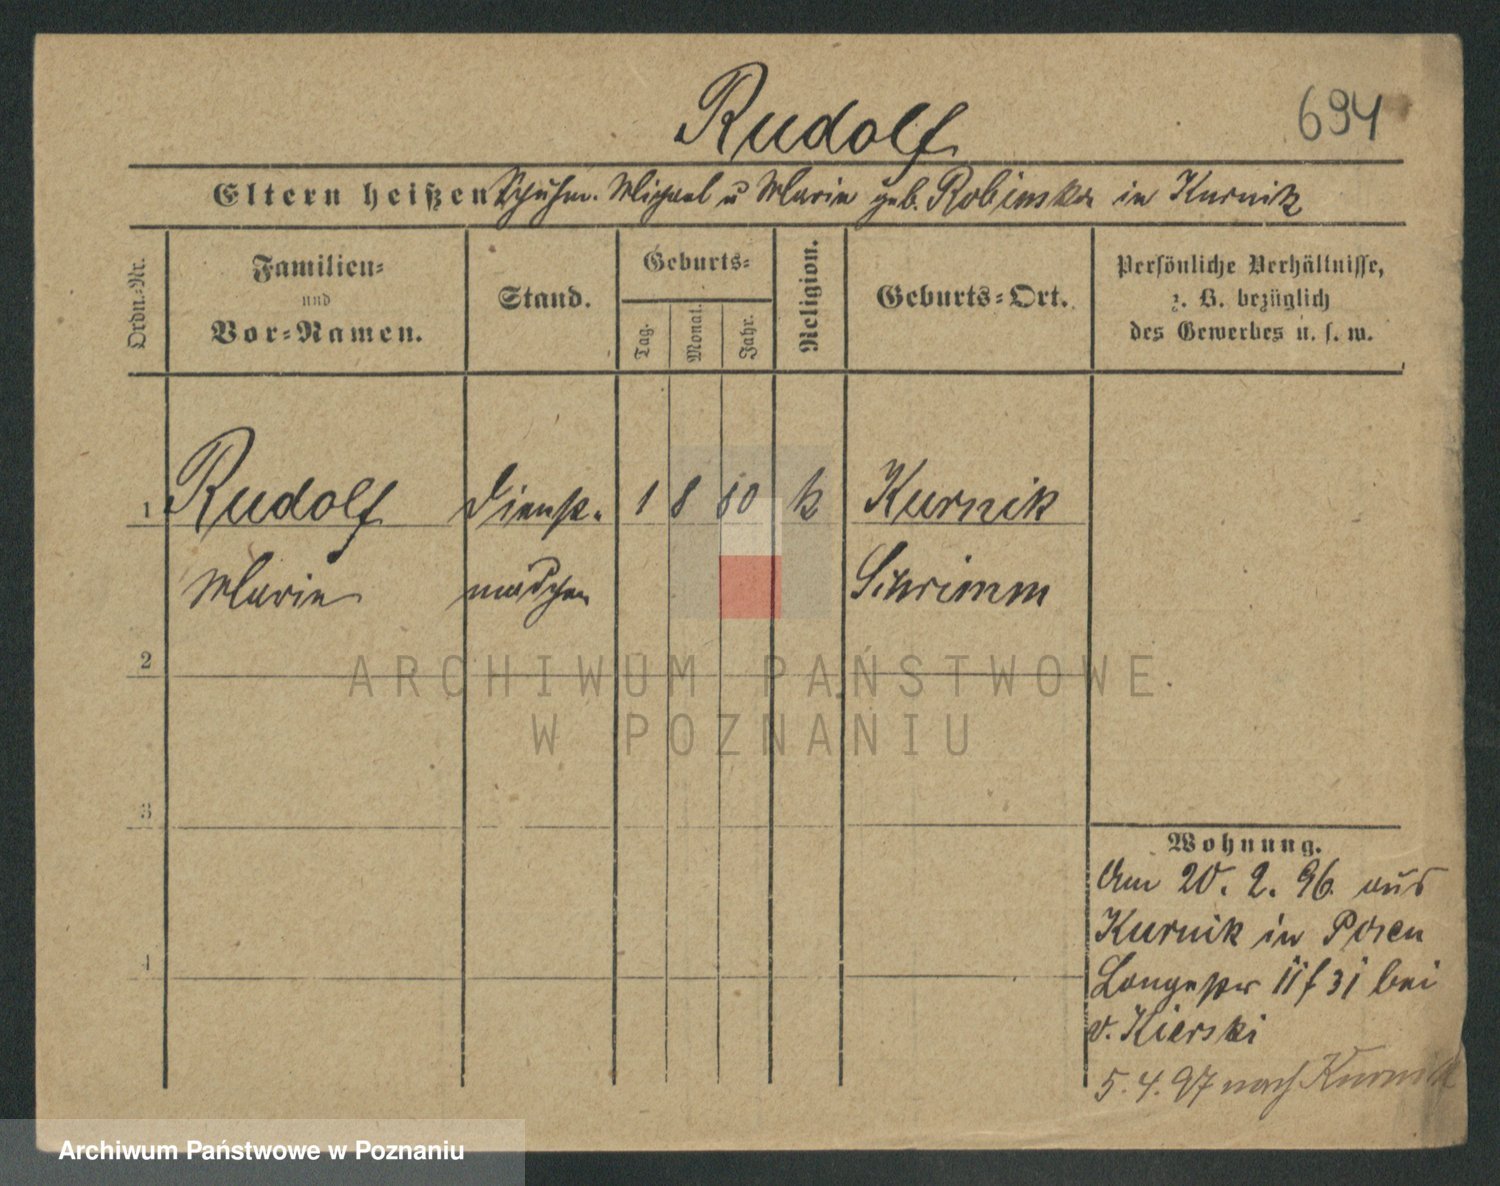 694
Rudolf
Eltern heißen Schuhm. Michael u Marie geb. Robinska in Kurnik
Ordn.-Nr.
Familien-
und
Vor-Namen.
Stand.
Geburts-
Tag.
Monat.
Jahr.
Religion.
Geburts-Ort.
Persönliche Verhältnisse,
z. B. bezüglich
des Gewerbes u. s. w.
1 Rudolf Dienst- 1 8 80 k Kurnik
Marie mädchen Schrimm
2
3
4
Wohnung.
Am 20. 2. 96 aus
Kurnik in Posen
Langestr 11 f 31 bei
v. Kierski
5. 4. 97 nach Kurnik
ARCHIWUM PAŃSTWOWE
W POZNANIU
Archiwum Państwowe w Poznaniu